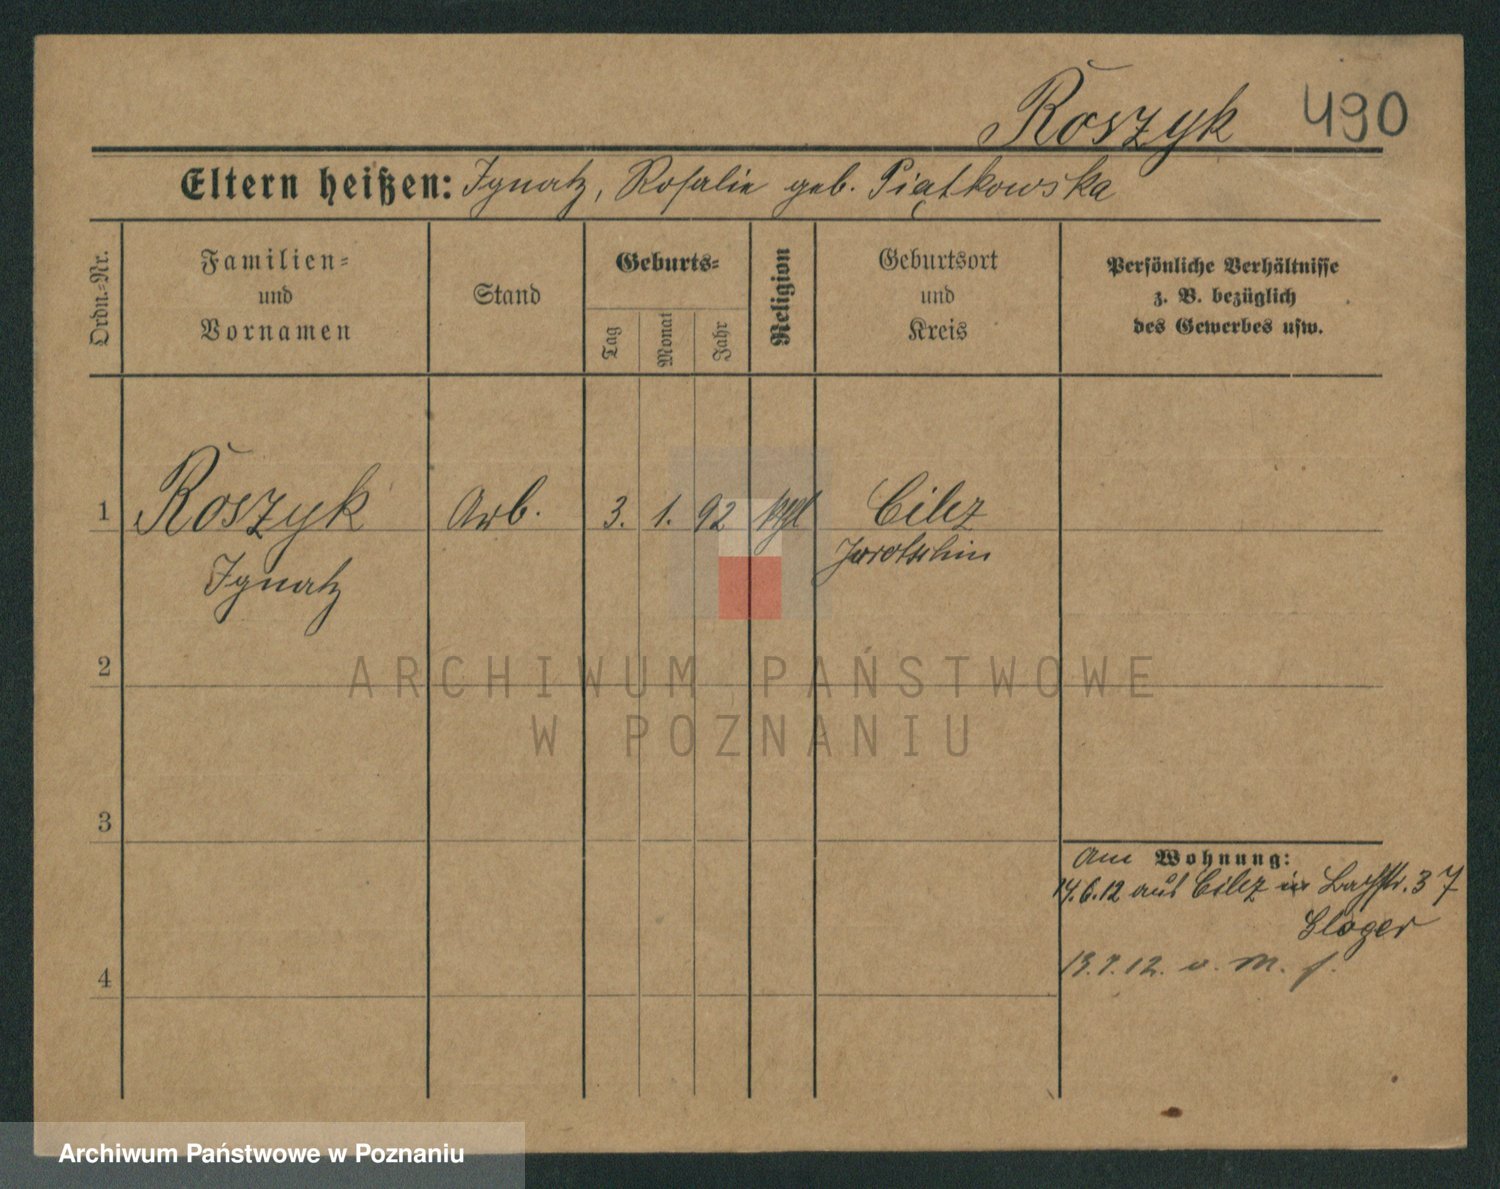 Roszyk 490
Eltern heißen: Ignatz, Rosalie geb. Piątkowska
Ordn.-Nr.
Familien-
und
Vornamen
Stand
Geburts-
Tag
Monat
Jahr
Religion
Geburtsort
und
Kreis
Persönliche Verhältnisse
z. B. bezüglich
des Gewerbes usw.
1 Roszyk Arb. 3. 1. 92 kath Cilcz
Ignatz Jarotschin
2
ARCHIWUM PAŃSTWOWE
W POZNANIU
3
am Wohnung:
14.6.12 aus Cilcz in Bachstr. 37
Gloger
4
Archiwum Państwowe w Poznaniu